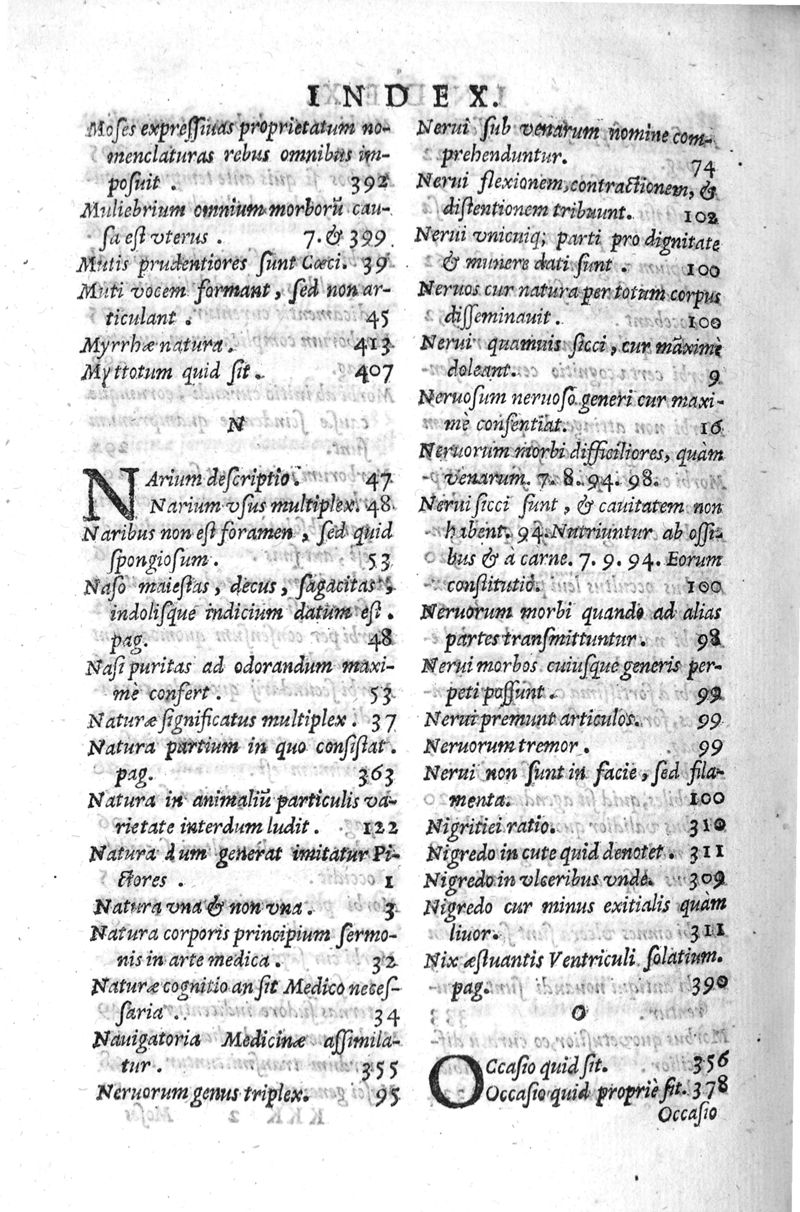 INDEX.
Moses expressiuas proprietatum no-
menclaturas rebus omnibus im-
posuit . 392
Muliebrium omnium morborũ cau-
sa est vterus . 7. & 399
Mutis prudentiores sunt Cæci. 39
Muti vocem formant, sed non ar-
ticulant . 45
Myrrhæ natura. 413
Myttotum quid sit. 407
N
NArium descriptio. 47
Narium vsus multiplex. 48
Naribus non est foramen, sed quid
spongiosum. 53
Naso maiestas, decus, sagacitas,
indolisque indicium datum est.
pag. 48
Nasi puritas ad odorandum maxi-
mè confert . 53
Naturæ significatus multiplex . 37
Natura partium in quo consistat.
pag. 363
Natura in animaliũ particulis va-
rietate interdum ludit . 122
Natura dum generat imitatur Pi-
ctores . 1
Natura vna & non vna . 3
Natura corporis principium sermo-
nis in arte medica . 32
Naturæ cognitio an sit Medico neces-
saria . 34
Nauigatoria Medicinæ assimila-
tur . 355
Neruorum genus triplex. 95
Nerui sub venarum nomine com-
prehenduntur. 74
Nerui flexionem, contractionem, &
distentionem tribuunt. 102
Nerui vnicuiq; parti pro dignitate
& munere dati sunt . 100
Neruos cur natura per totum corpus
disseminauit . 100
Nerui quamuis sicci, cur maximè
doleant. 9
Neruosum neruoso generi cur maxi-
mè consentiat. 16
Neruorum morbi difficiliores, quàm
venarum. 7. 8. 94. 98.
Nerui sicci sunt, & cauitatem non
habent. 94. Nutriuntur ab ossi-
bus & à carne. 7. 9. 94. Eorum
constitutio. 100
Neruorum morbi quando ad alias
partes transmittuntur . 98
Nerui morbos cuiusque generis per-
peti possunt . 99
Nerui premunt articulos. 99
Neruorum tremor . 99
Nerui non sunt in facie, sed fila-
menta. 100
Nigritiei ratio. 310
Nigredo in cute quid denotet . 311
Nigredo in vlceribus vnde. 309
Nigredo cur minus exitialis quàm
liuor. 311
Nix æstuantis Ventriculi solatium.
pag. 390
O
OCcasio quid sit. 356
Occasio quid propriè sit. 378
Occasio